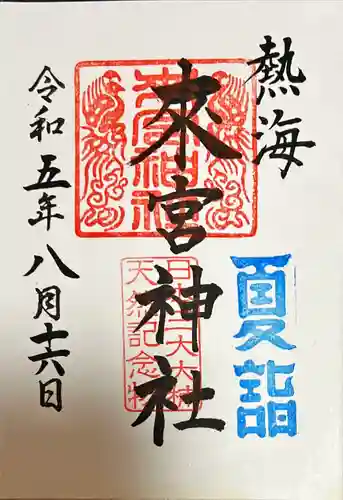 熱海
來宮神社
來宮神社
日本三大大楠
天然記念物
夏詣
令和五年八月十六日